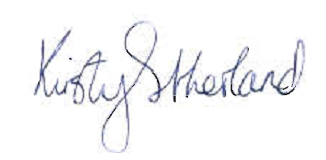 Kirsty Sutherland